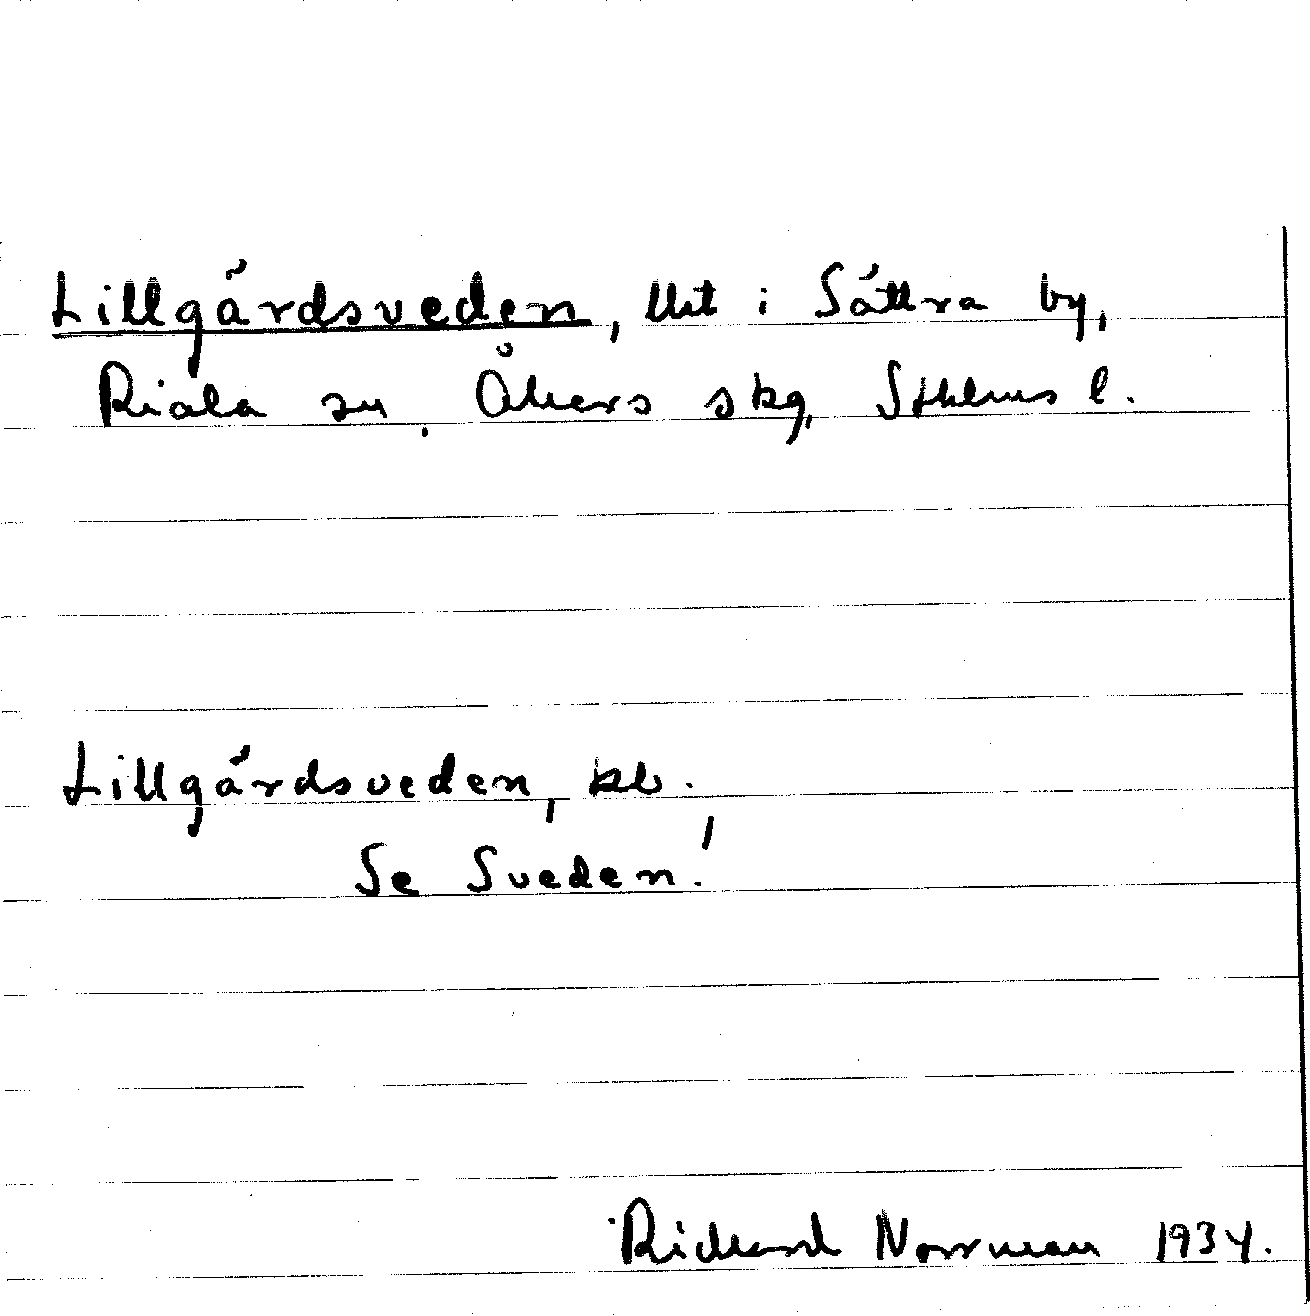 Lillgårdsveden, llit i Såttra by,
Riala sn. Åkers skg, Sthlms l.
Lillgårdsveden, kb.
Se Sveden!
Richard Norrman 1934.